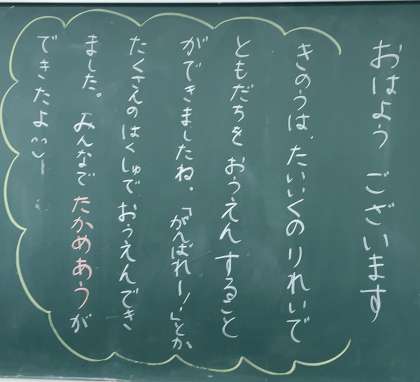 おはよう ございます
きのうは、たいいくのりれいで
ともだちをおうえんすること
ができましたね。「がんばれー!」とか
たくさんのはくしゅでおうえんでき
ました。みんなでたかめあうが
できたよ